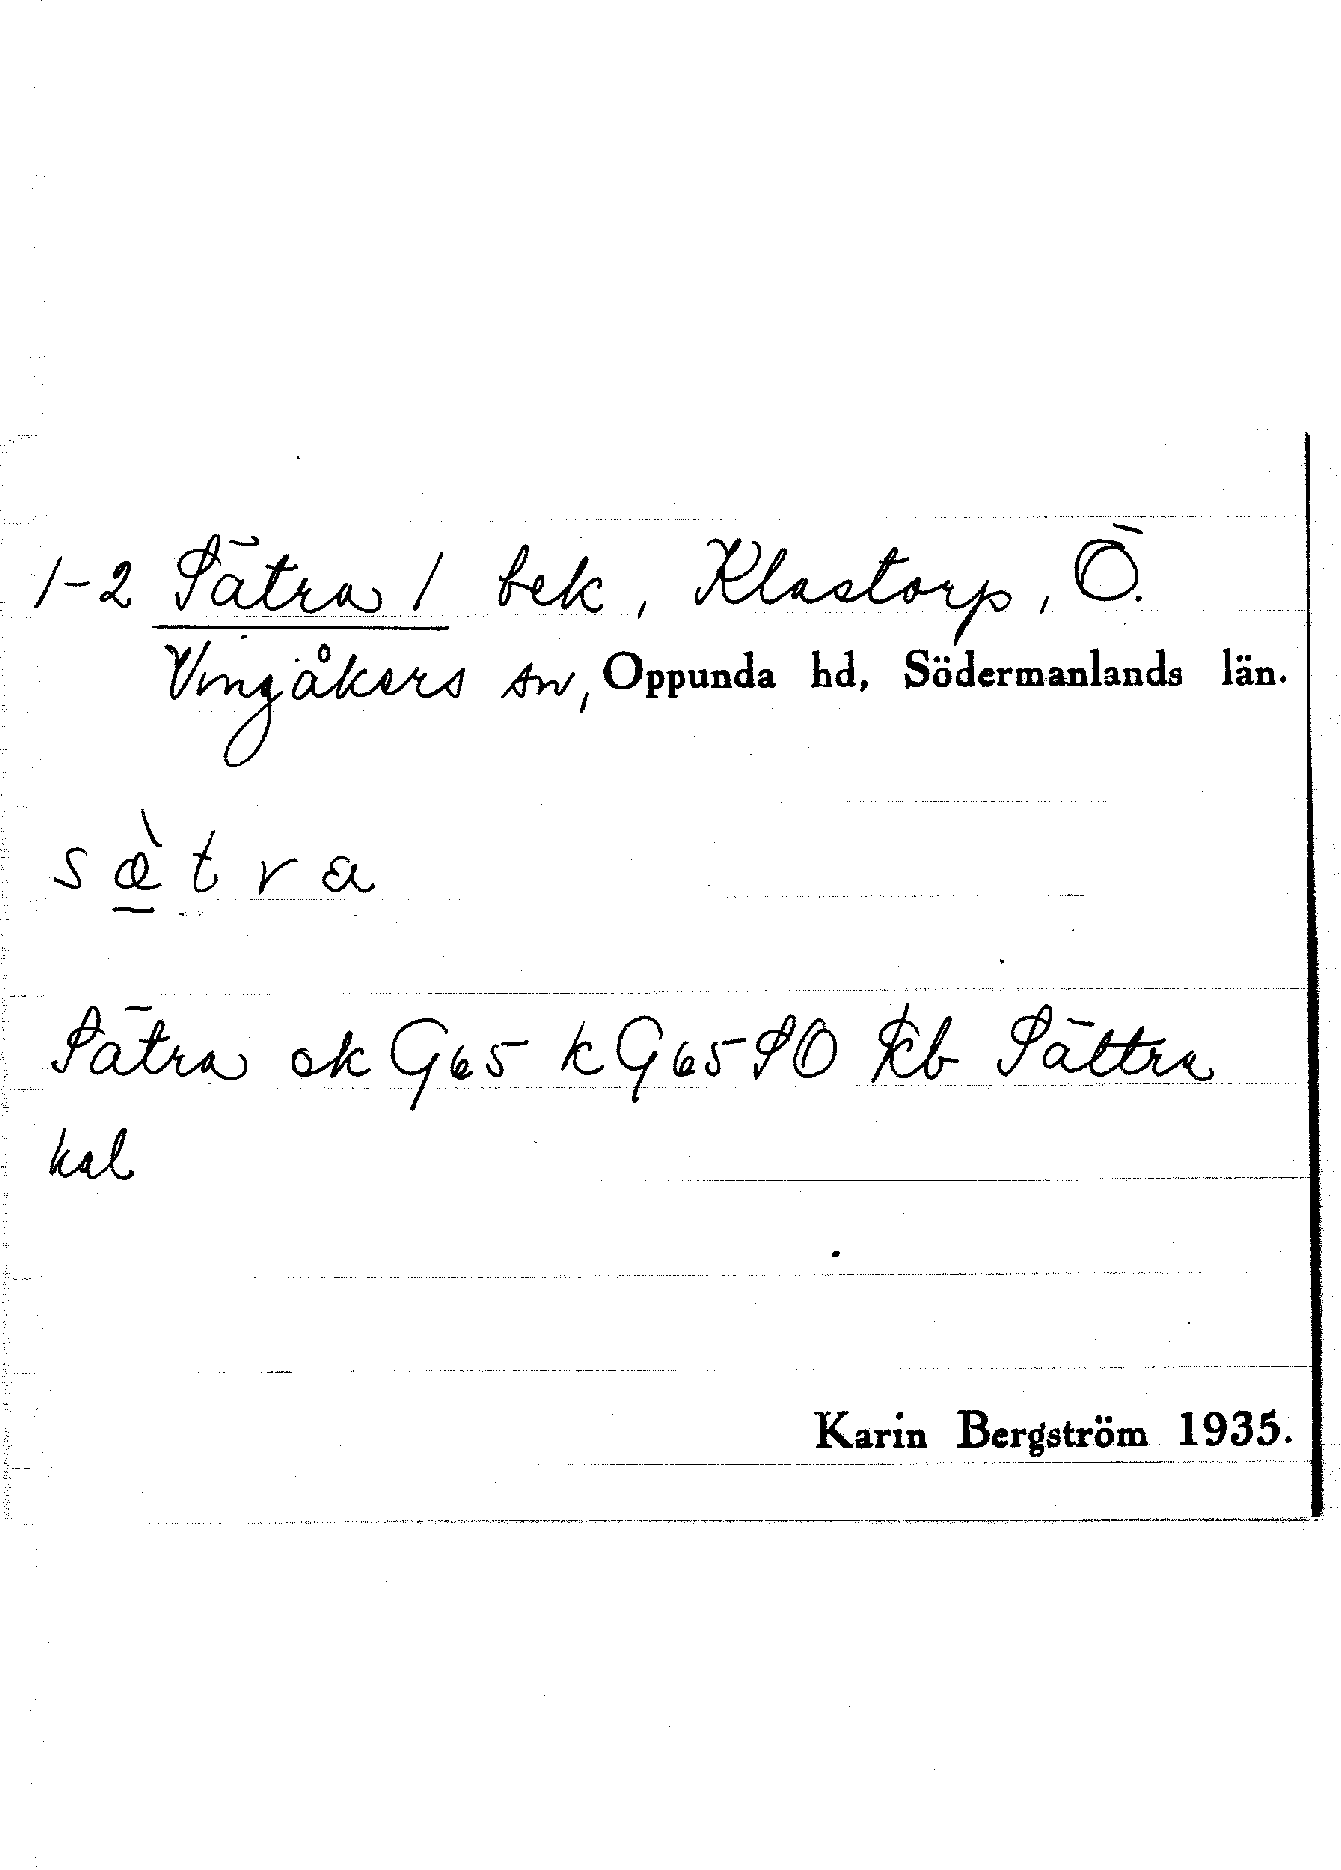 1-2 Sätra / bek, Klastorp, Ö.
Vingåkers sn, Oppunda hd, Södermanlands län.
s æ̀ t r a
Sätra ek G65 k G65 SO kb Sättra
kal
Karin Bergström 1935.